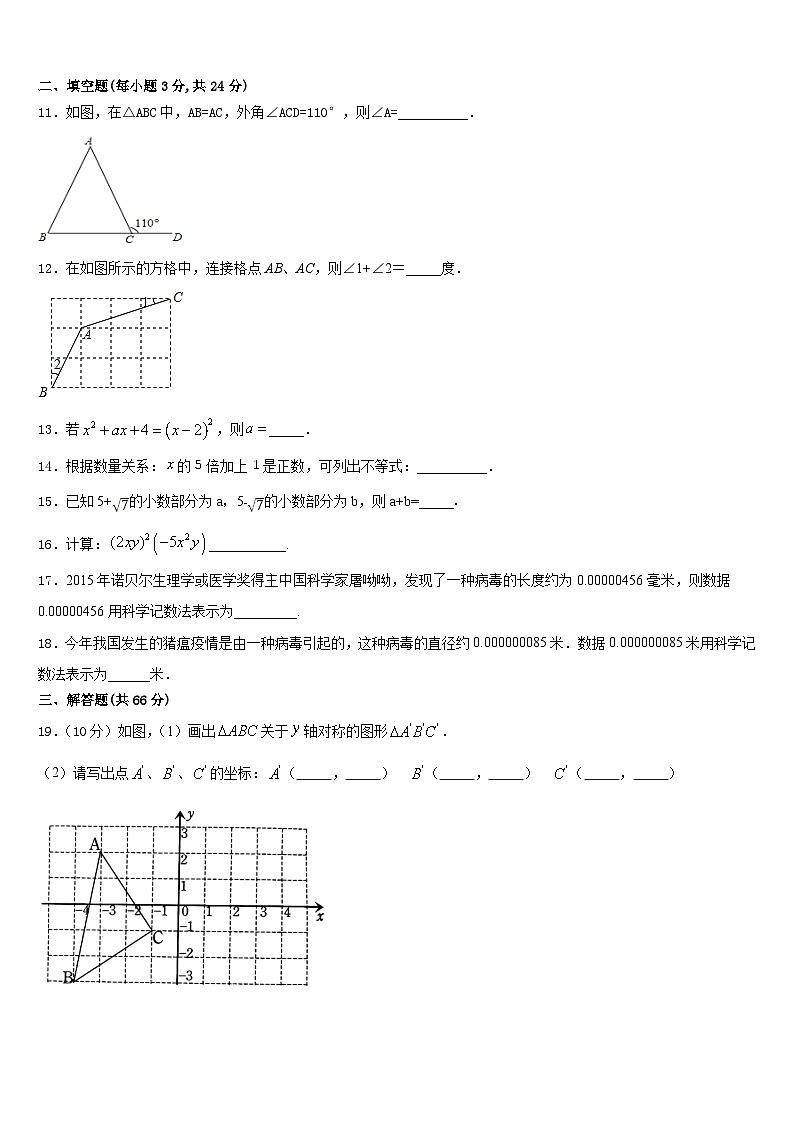 二、填空题(每小题 3 分,共 24 分)
11．如图，在△ABC 中，AB=AC，外角∠ACD=110°，则∠A=__________．
A
110°
B C D
12．在如图所示的方格中，连接格点 AB、AC，则∠1+∠2＝_____度．
1 C
A
2
B
13．若 x²+ax+4=(x−2)²，则 a=_____．
14．根据数量关系：x 的 5 倍加上 1 是正数，可列出不等式：__________．
15．已知 5+√7的小数部分为 a，5-√7的小数部分为 b，则 a+b=_____．
16．计算：(2xy)²(−5x²y)___________.
17．2015 年诺贝尔生理学或医学奖得主中国科学家屠呦呦，发现了一种病毒的长度约为 0.00000456 毫米，则数据
0.00000456 用科学记数法表示为_________.
18．今年我国发生的猪瘟疫情是由一种病毒引起的，这种病毒的直径约 0.000000085 米．数据 0.000000085 米用科学记
数法表示为______米．
三、解答题(共 66 分)
19．（10 分）如图，（1）画出 ΔABC 关于 y 轴对称的图形 ΔA'B'C'．
（2）请写出点 A'、B'、C' 的坐标：A'（_____，_____） B'（_____，_____） C'（_____，_____）
y
3
A 2
1
−4 −3 −2 −1 0 1 2 3 4 x
C −1
−2
B −3